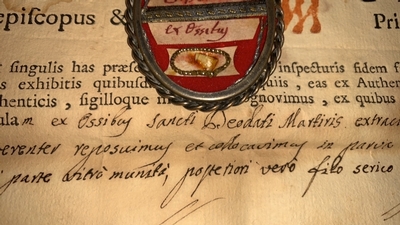 episcopus &
Pri
ex Ossibus
t singulis has præse inspecturis fidem f
s exhibitis quibusd quiis, eas ex Authe
henticis, sigilloque m ognovimus, ex quibus
ulam ex Ossibus Sancti Deodati Martiris extrac
erenter reposuimus et collocavimus in parva
i parte vitrô munitâ, posteriori verò filo serico